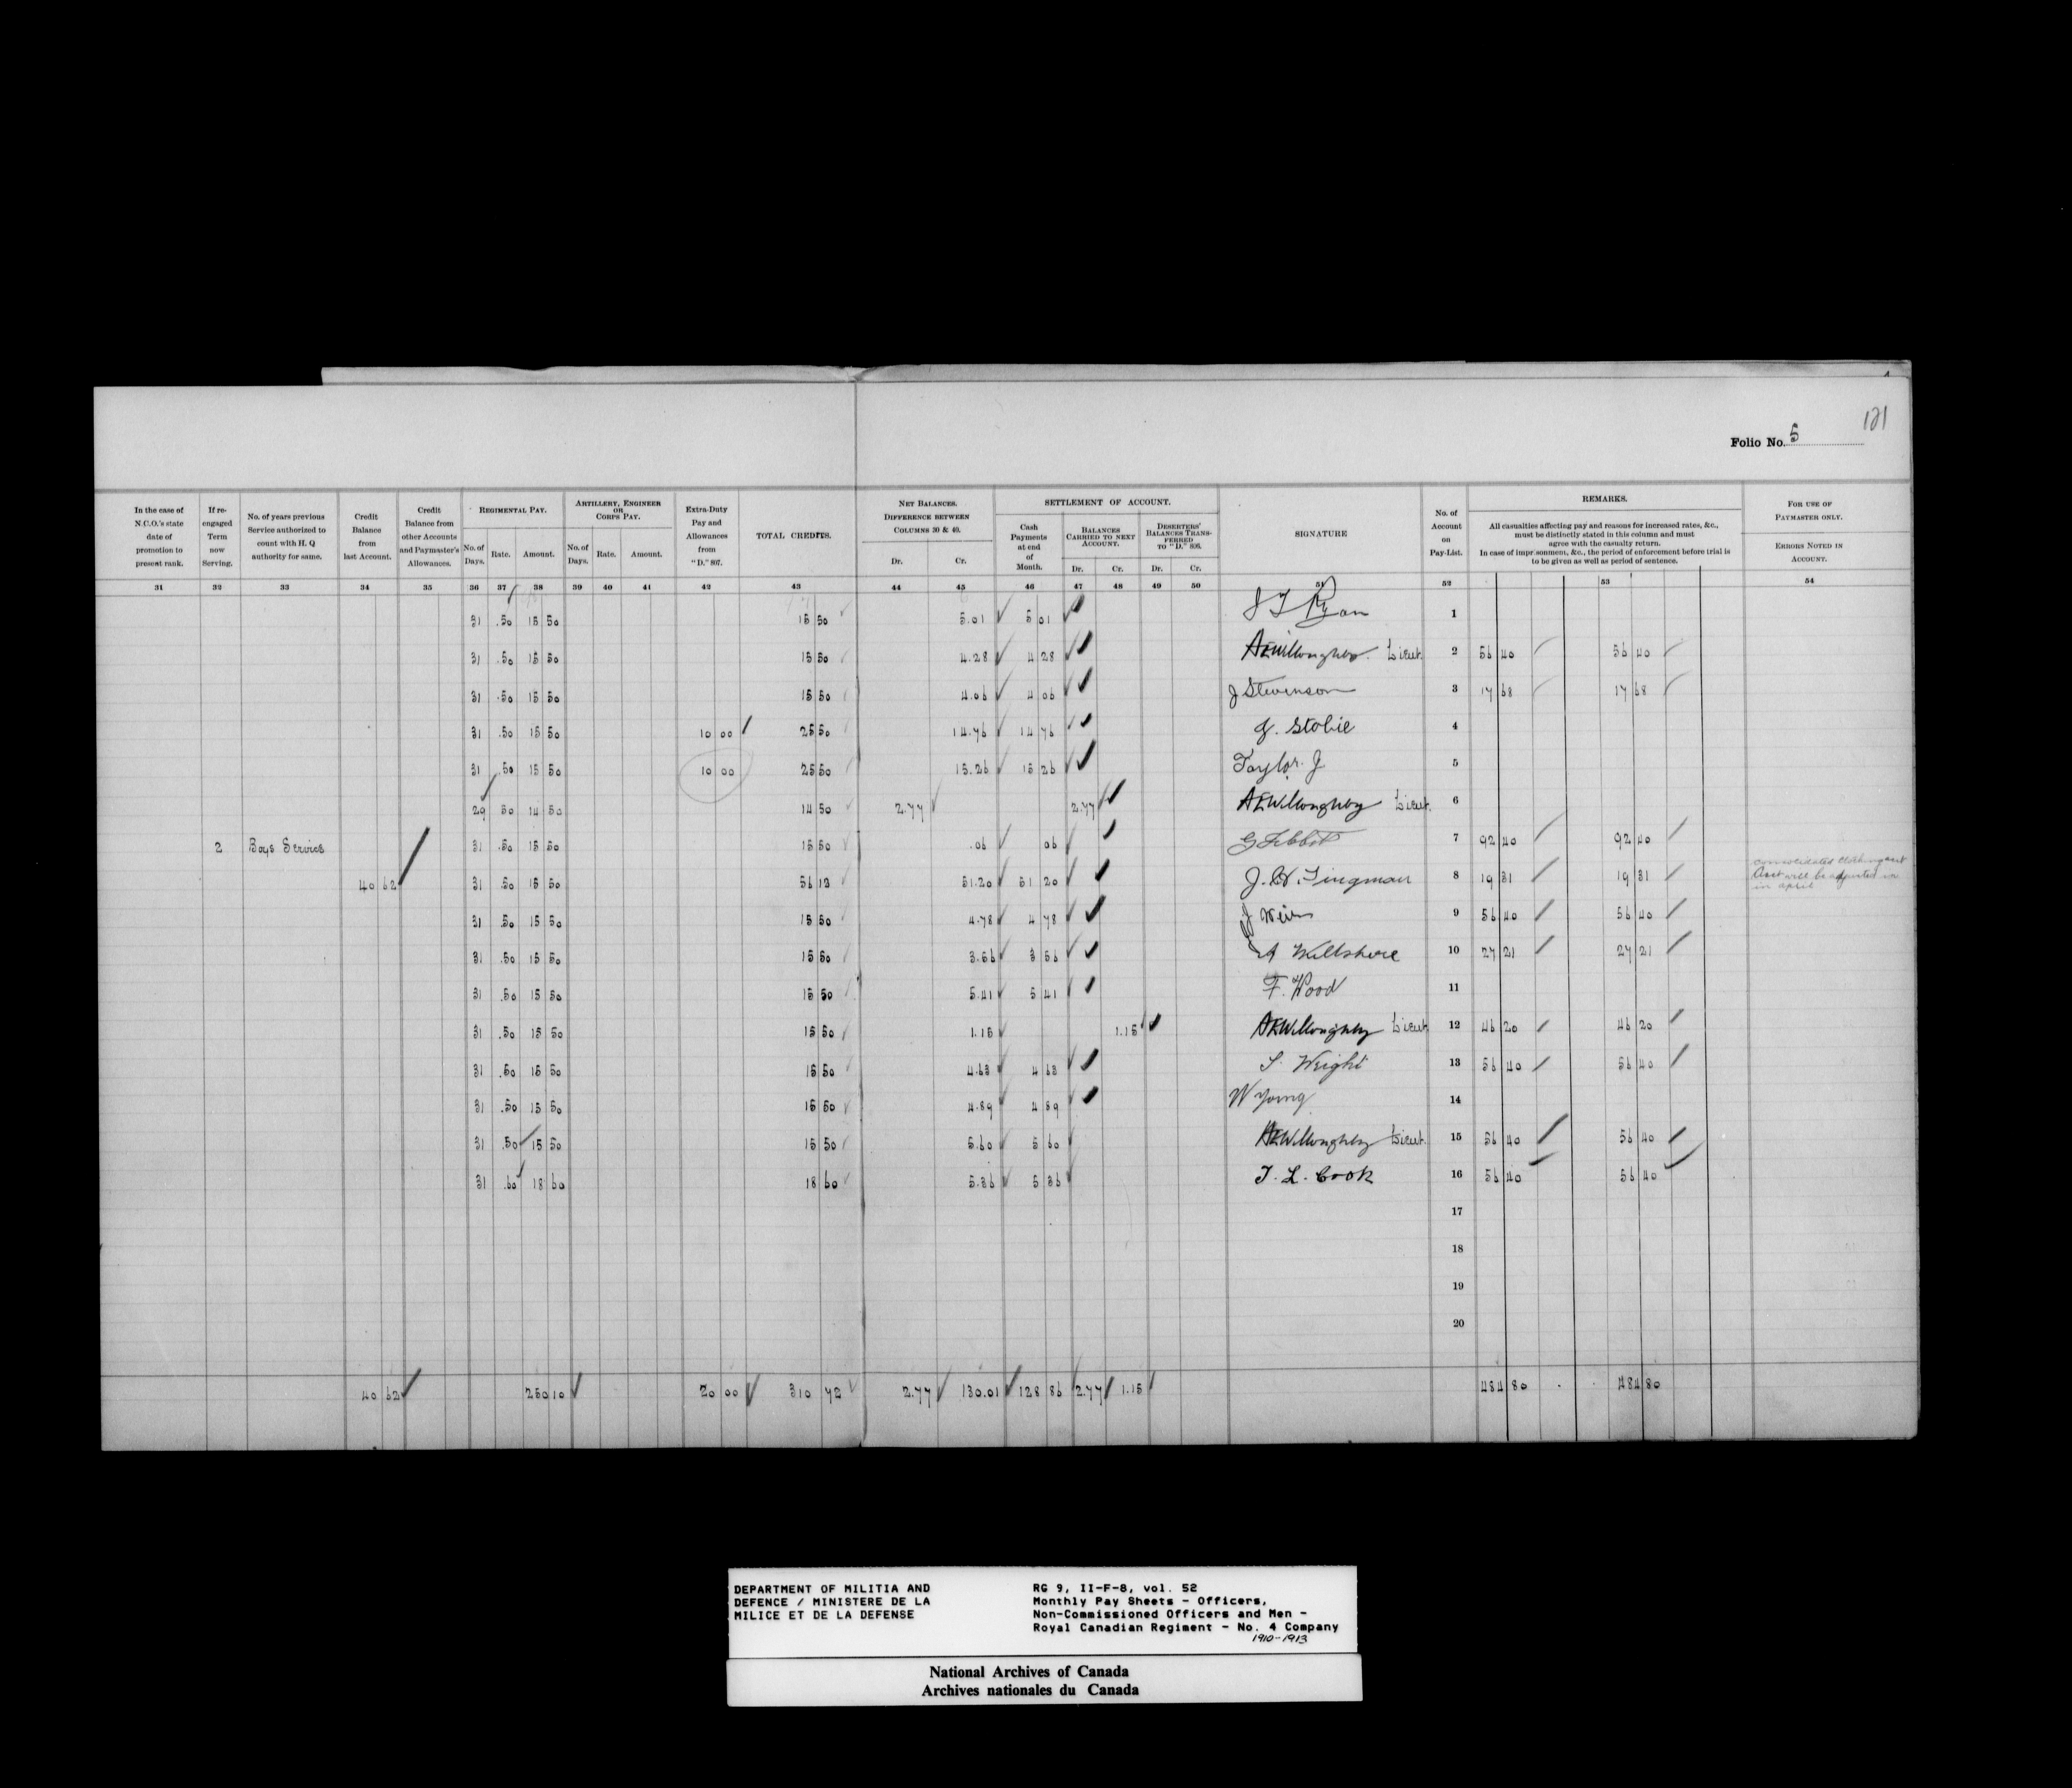 121
Folio No. 5
In the case of N.C.O.'s state date of promotion to present rank.
If re-engaged Term now Serving.
No. of years previous Service authorized to count with H. Q authority for same.
Credit Balance from last Account.
Credit Balance from other Accounts and Paymaster's Allowances.
REGIMENTAL PAY.
No. of Days. Rate. Amount.
ARTILLERY, ENGINEER OR CORPS PAY.
No. of Days. Rate. Amount.
Extra-Duty Pay and Allowances from "D." 807.
TOTAL CREDITS.
NET BALANCES. DIFFERENCE BETWEEN COLUMNS 30 & 40.
Dr. Cr.
SETTLEMENT OF ACCOUNT.
Cash Payments at end of Month.
BALANCES CARRIED TO NEXT ACCOUNT.
Dr. Cr.
DESERTERS' BALANCES TRANSFERRED TO "D." 806.
Dr. Cr.
SIGNATURE
No. of Account on Pay-List.
REMARKS.
All casualties affecting pay and reasons for increased rates, &c., must be distinctly stated in this column and must agree with the casualty return.
In case of imprisonment, &c., the period of enforcement before trial is to be given as well as period of sentence.
FOR USE OF PAYMASTER ONLY.
ERRORS NOTED IN ACCOUNT.
31 32 33 34 35 36 37 38 39 40 41 42 43 44 45 46 47 48 49 50 51 52 53 54
31 .50 15 50 15 50 5.01 5 01 J T Ryan 1
31 .50 15 50 15 50 4.28 4 28 AEWilloughby. Lieut. 2 56 40 56 40
31 .50 15 50 15 50 4.06 4 06 J Stevenson 3 17 68 17 68
31 .50 15 50 10 00 25 50 14.76 14 76 J. Stobie 4
31 .50 15 50 10 00 25 50 15.26 15 26 Taylor. J 5
29 50 14 50 14 50 2.77 2.77 AEWilloughby Lieut. 6
2 Boys Service 31 .50 15 50 15 50 .06 06 7 92 40 92 40
40 62 31 .50 15 50 56 12 51.20 51 20 J. W. Tingman 8 19 31 19 31 consolidated clothing acct
will be adjusted
in april
31 .50 15 50 15 50 4.78 4 78 J Weir 9 56 40 56 40
31 .50 15 50 15 50 3.56 3 56 A Willshire 10 27 21 27 21
31 .50 15 50 15 50 5.41 5 41 F. Wood 11
31 .50 15 50 15 50 1.15 1.15 AEWilloughby Lieut 12 46 20 46 20
31 .50 15 50 15 50 4.63 4 63 S. Wright 13 56 40 56 40
31 .50 15 50 15 50 4.89 4 89 W Young 14
31 .50 15 50 15 50 5.60 5 60 AEWilloughby Lieut. 15 56 40 56 40
31 .60 18 60 18 60 5.36 5 36 T. L. Cook 16 56 40 56 40
17
18
19
20
40 62 250 10 20 00 310 72 2.77 130.01 128 86 2.77 1.15 484 80 484 80
DEPARTMENT OF MILITIA AND
DEFENCE / MINISTERE DE LA
MILICE ET DE LA DEFENSE
RG 9, II-F-8, vol. 52
Monthly Pay Sheets - Officers,
Non-Commissioned Officers and Men -
Royal Canadian Regiment - No. 4 Company
1910-1913
National Archives of Canada
Archives nationales du Canada